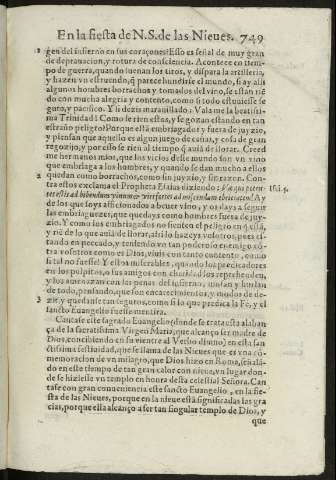 En la fiesta de N.S.de las Nieues. 749
gen del infierno en sus coraçones! Esso es señal de muy gran
de deprauacion, y rotura de consciencia. Acontece en tiem-
po de guerra, quando suenan los tiros, y dispara la artilleria,
y hazen vn estruendo, q̃ parece hundirse el mundo, si ay alli
algunos hombres borrachos y tomados del vino, se estan riẽ
do con mucha alegria y contento, como si todo estuuiesse se
guro, y pacifico. Y si dezis marauillado: Vala me la beatissi-
ma Trinidad! Como se rien estos, y se gozan estando en tan
estraño peligro? Porque està embriagados y fuera de juyzio,
y piensan que aquello es algun juego de cañas, y cosa de gran
regozijo, y por esso se rien al tiempo q̃ auiã de llorar. Creed
me hermanos mios, que los vicios desse mundo son vn vino
que embriaga a los hombres, y quando se dan mucho a ellos
quedan como borrachos, como sin juyzio, y sin razon. Con-
2 tra estos exclama el Propheta Esaias diziendo: Væ qui poten- Isai.5.
tes estis ad bibendum vinum & viri fortes ad miscendam ebrietatem! Ay
de los que soys afficionados a beuer vino, y os days a seguir
las embriaguezes, que quedays como hombres fuera de juy-
zio. Y como los embriagados no sienten el peligro en q̃ està,
y riẽ de lo que auiã de llorar, assi lo hazeys vosotros, pues es-
tando en peccado, y teniendo vn tan poderoso enemigo cõ-
tra vosotros como es Dios, viuis con tanto contento, como
si tal no fuesse! Y estos miserables, quando los predicadores
en los pulpitos, o sus amigos con charidad los reprehenden,
y los amenazan con las penas del infierno, mofan y burlan
de todo, pensando, que son encarecimientos, y modos de de-
3 zir, y quedanse tan seguros, como si lo que predica la Fe, y el
sancto Euangelio fuesse mentira.
Cantase este sagrado Euangelio (donde se trata aucta alaban
ça de la sacratissima Virgen Maria, que alcanço ser madre de
Dios, concibiendo en su vientre al Verbo diuino) en esta san
ctissima festiuidad, que se llama de las Nieues que es vna cõ-
memoracion de vn milagro, que Dios hizo en Roma, señalã
do en este tiempo de tan gran calor con nieue, vn lugar don-
de se hiziesse vn templo en honra desta celestial Señora. Can
tase con gran conueniencia este sancto Euangelio, en la fies-
ta de las Nieues, porque en la nieue està significadas las gra
cias, porque ella alcanço a ser tan singular templo de Dios, y
que